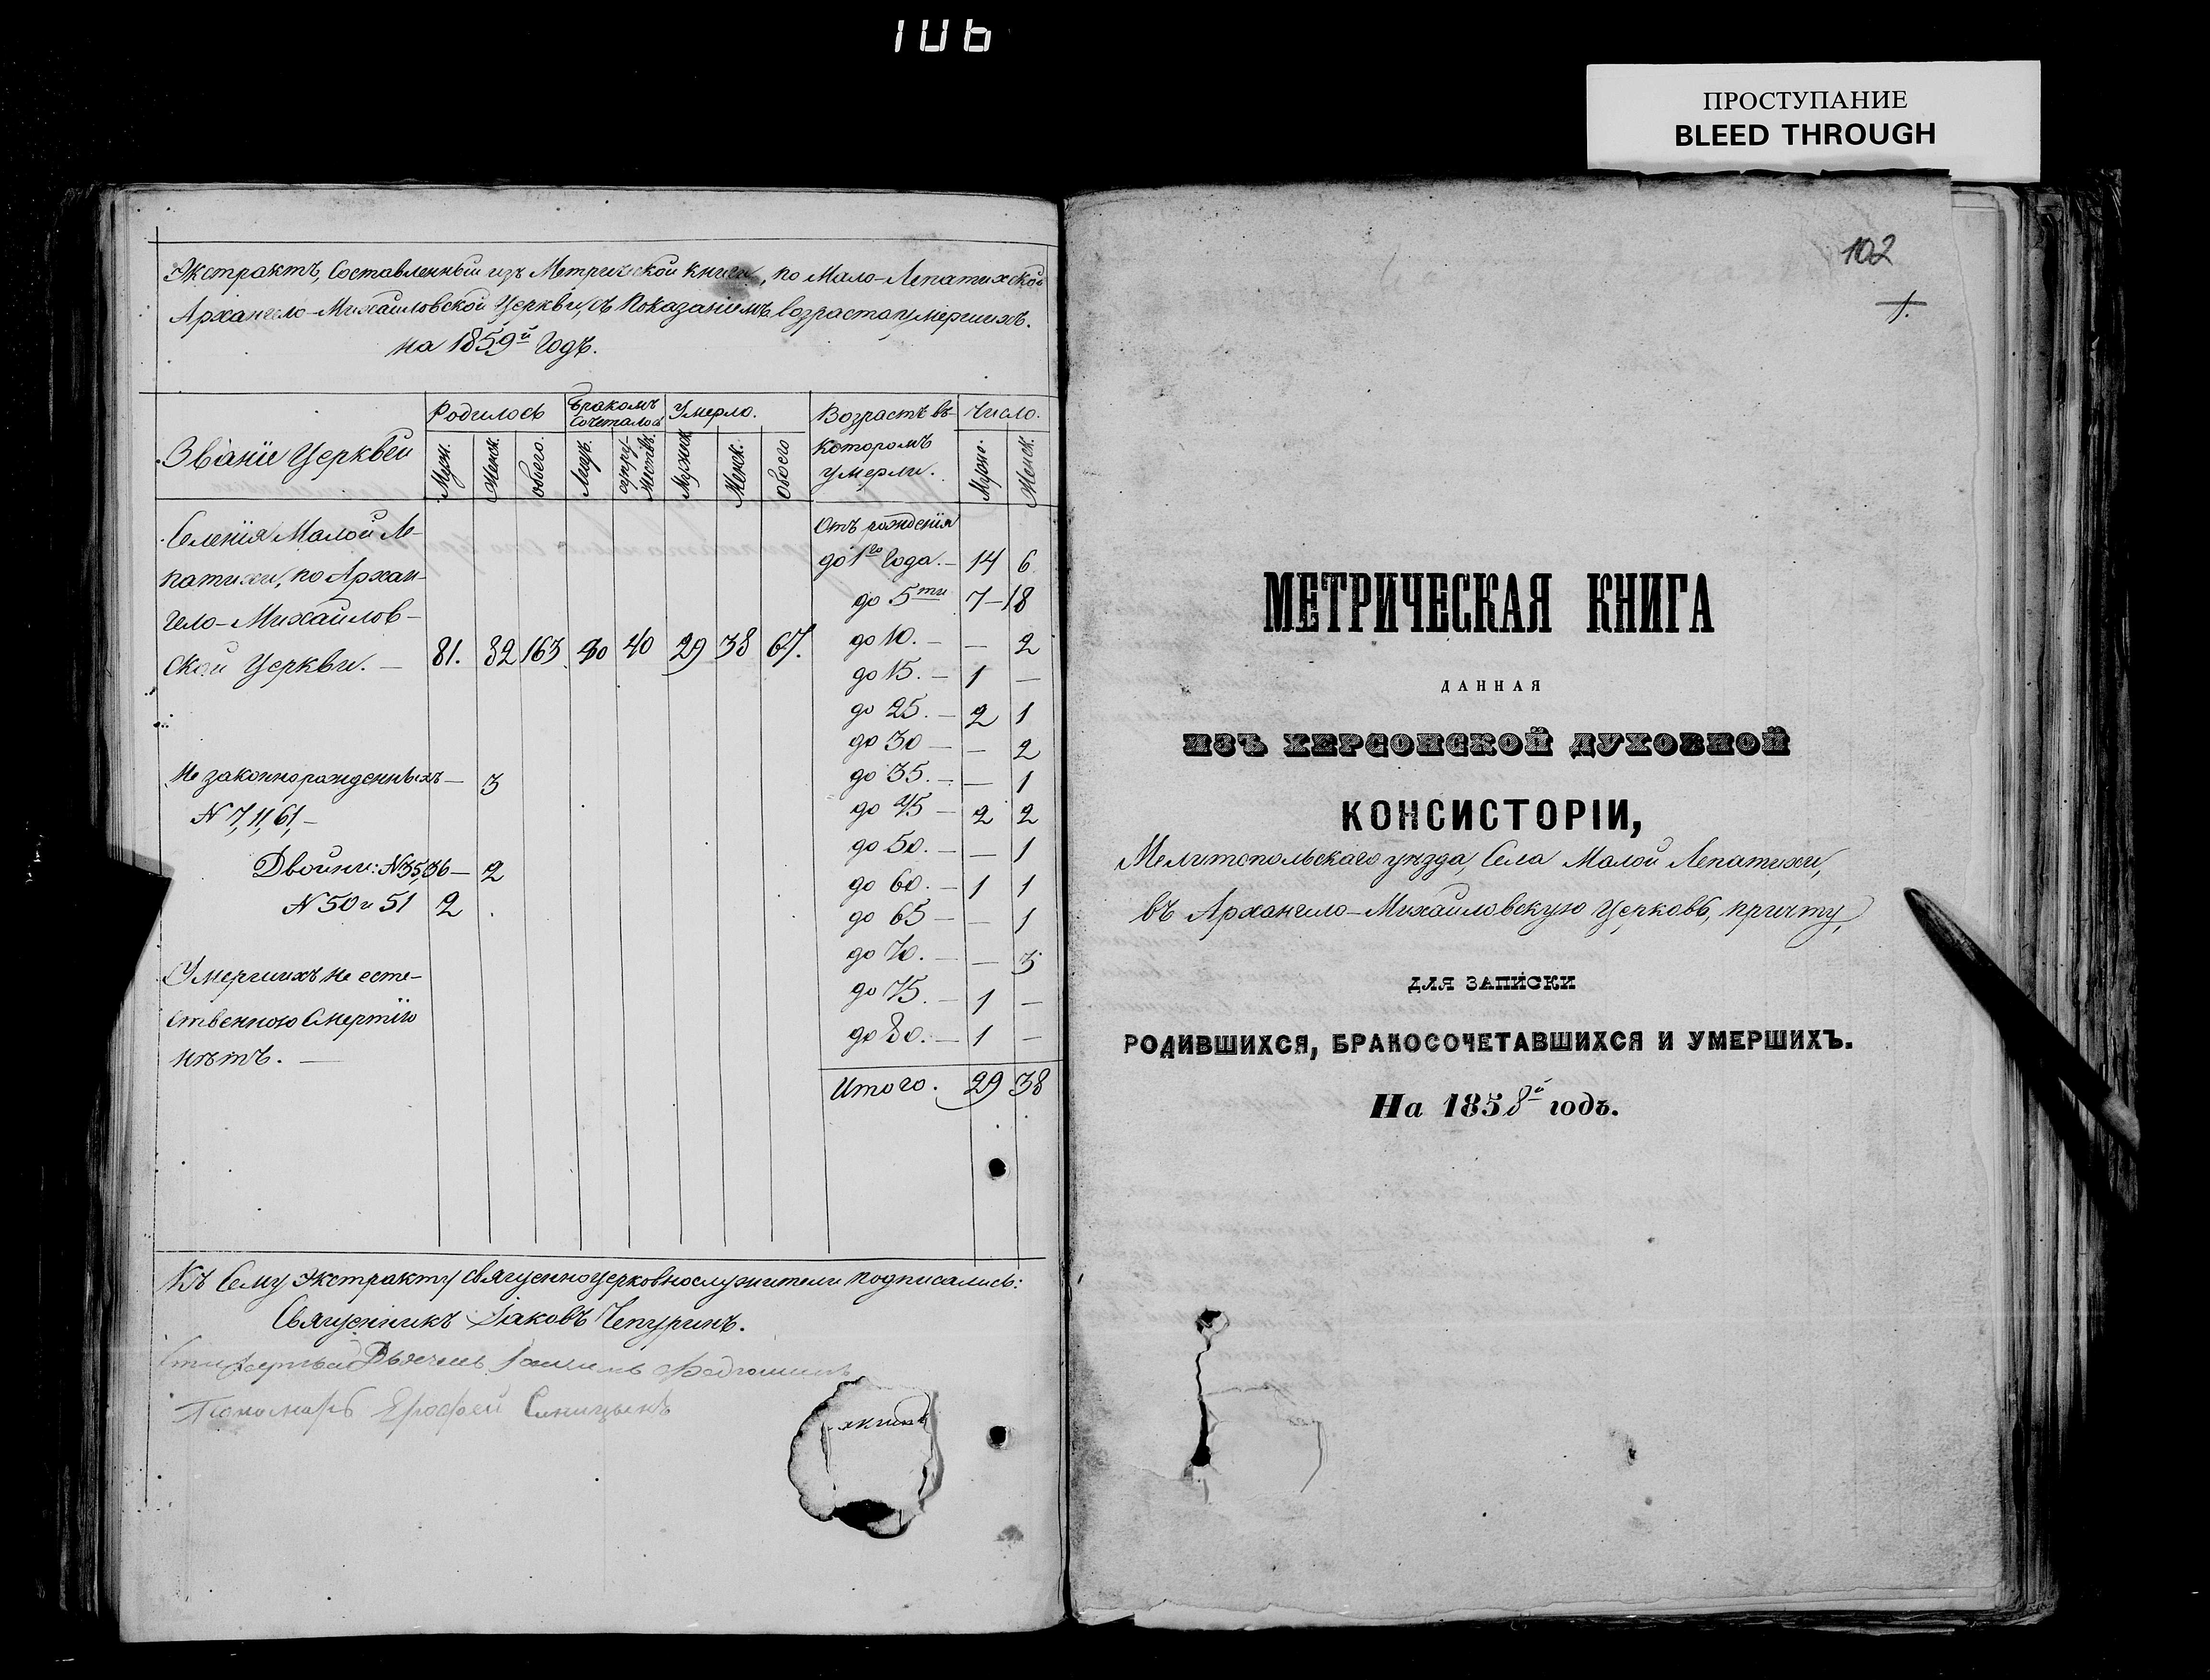 106
ПРОСТУПАНИЕ
BLEED THROUGH
Экстрактъ, Составленный изъ Метрической книги, по Мало-Лепатихской
Архангело-Михайловской Церкви, съ Показаніемъ возраста умершихъ.
на 1859й Годъ.
Званіе Церквей
Родилось
Бракомъ Сочеталось
Умерло.
Возрастъ въ которомъ умерли.
Число.
Муж. Женск. обоего. супружествъ. Мужск. Женск. Обоего Муж. Женск.
Селенія Малой Ле-
патихи, по Архан-
гело-Михайлов-
ской Церкви. — 81. 82 163 40 40 29 38 67.
Не законнорожденныхъ — 3
N 7, 11, 61, —
Двойни: N 35, 36 — 2
N 50 и 51 2
Умершихъ не есте-
ственною Смертію
нѣтъ. —
Отъ рожденія
до 1го Года. — 14 6
до 5ти 7 — 18
до 10. — — 2
до 15. — 1 —
до 25. — 2 1
до 30 — — 2
до 35. — — 1
до 45 — 2 2
до 50. — — 1
до 60. — 1 1
до 65 — — 1
до 70. — — 3
до 75. — 1 —
до 80. — 1 —
Итого. 29 38
Къ Сему экстракту священноцерковнослужители подписались:
Священникъ Іаковъ Чепуринъ.
Пономарь Ерофей Синицынъ
102
1.
МЕТРИЧЕСКАЯ КНИГА
ДАННАЯ
ИЗЪ ХЕРСОНСКОЙ ДУХОВНОЙ
КОНСИСТОРІИ,
Мелитопольскаго уѣзда, Села Малой Лепатихи,
въ Архангело-Михайловскую Церковь, причту,
ДЛЯ ЗАПИСКИ
РОДИВШИХСЯ, БРАКОСОЧЕТАВШИХСЯ И УМЕРШИХЪ.
На 1858й годъ.